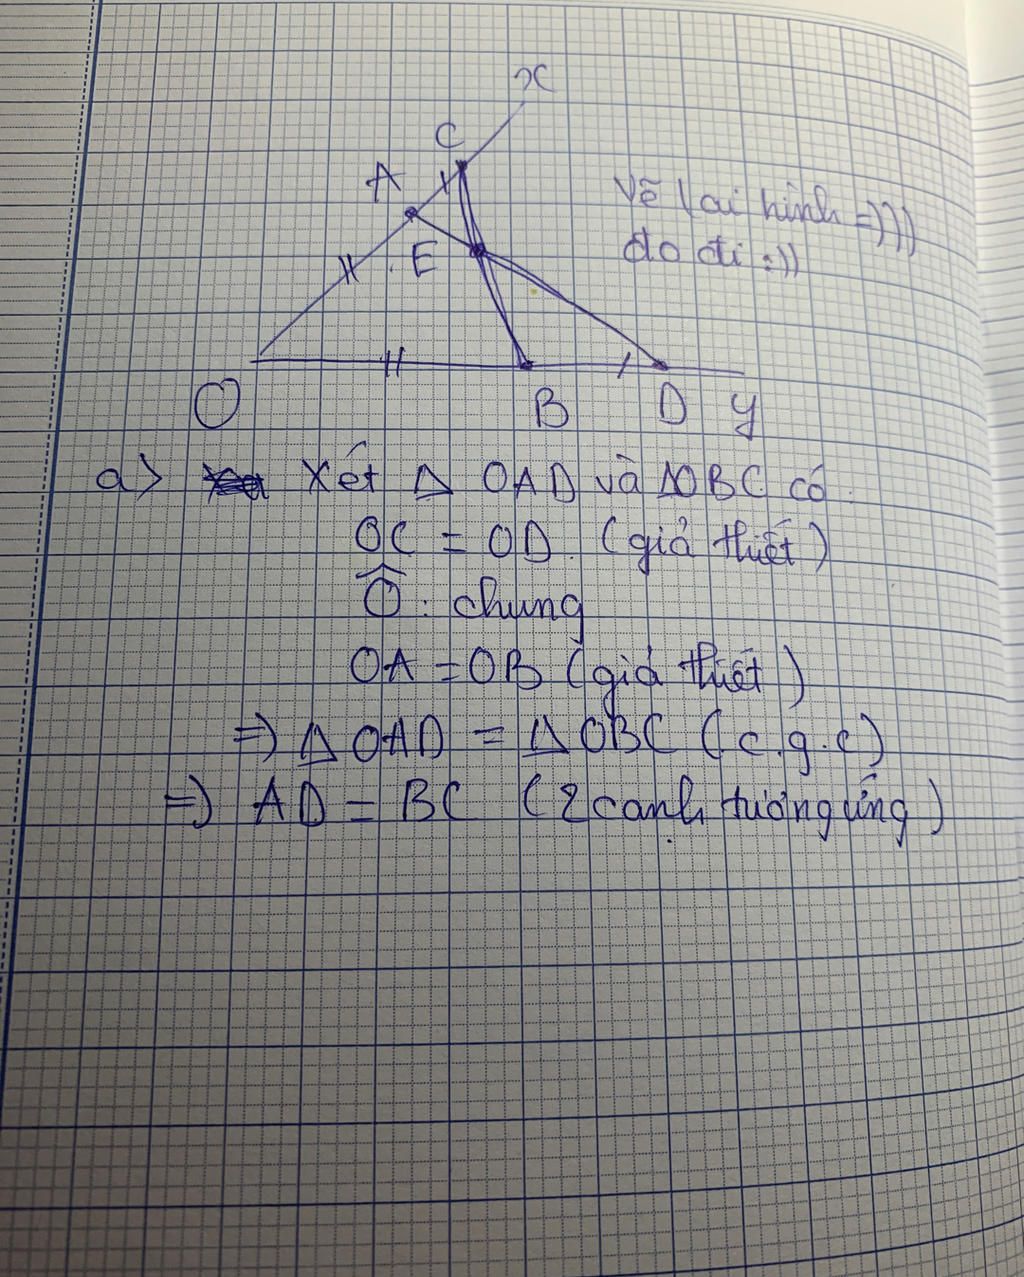 x
C
A
Vẽ lại hình =)))
E
đo đi :))
O
B D y
a> Xét Δ OAD và ΔOBC có
OC = OD. (giả thiết)
Ô: chung
OA = OB (giả thiết)
=) Δ OAD = Δ OBC (c.g.c)
=) AD = BC (2 cạnh tương ứng)